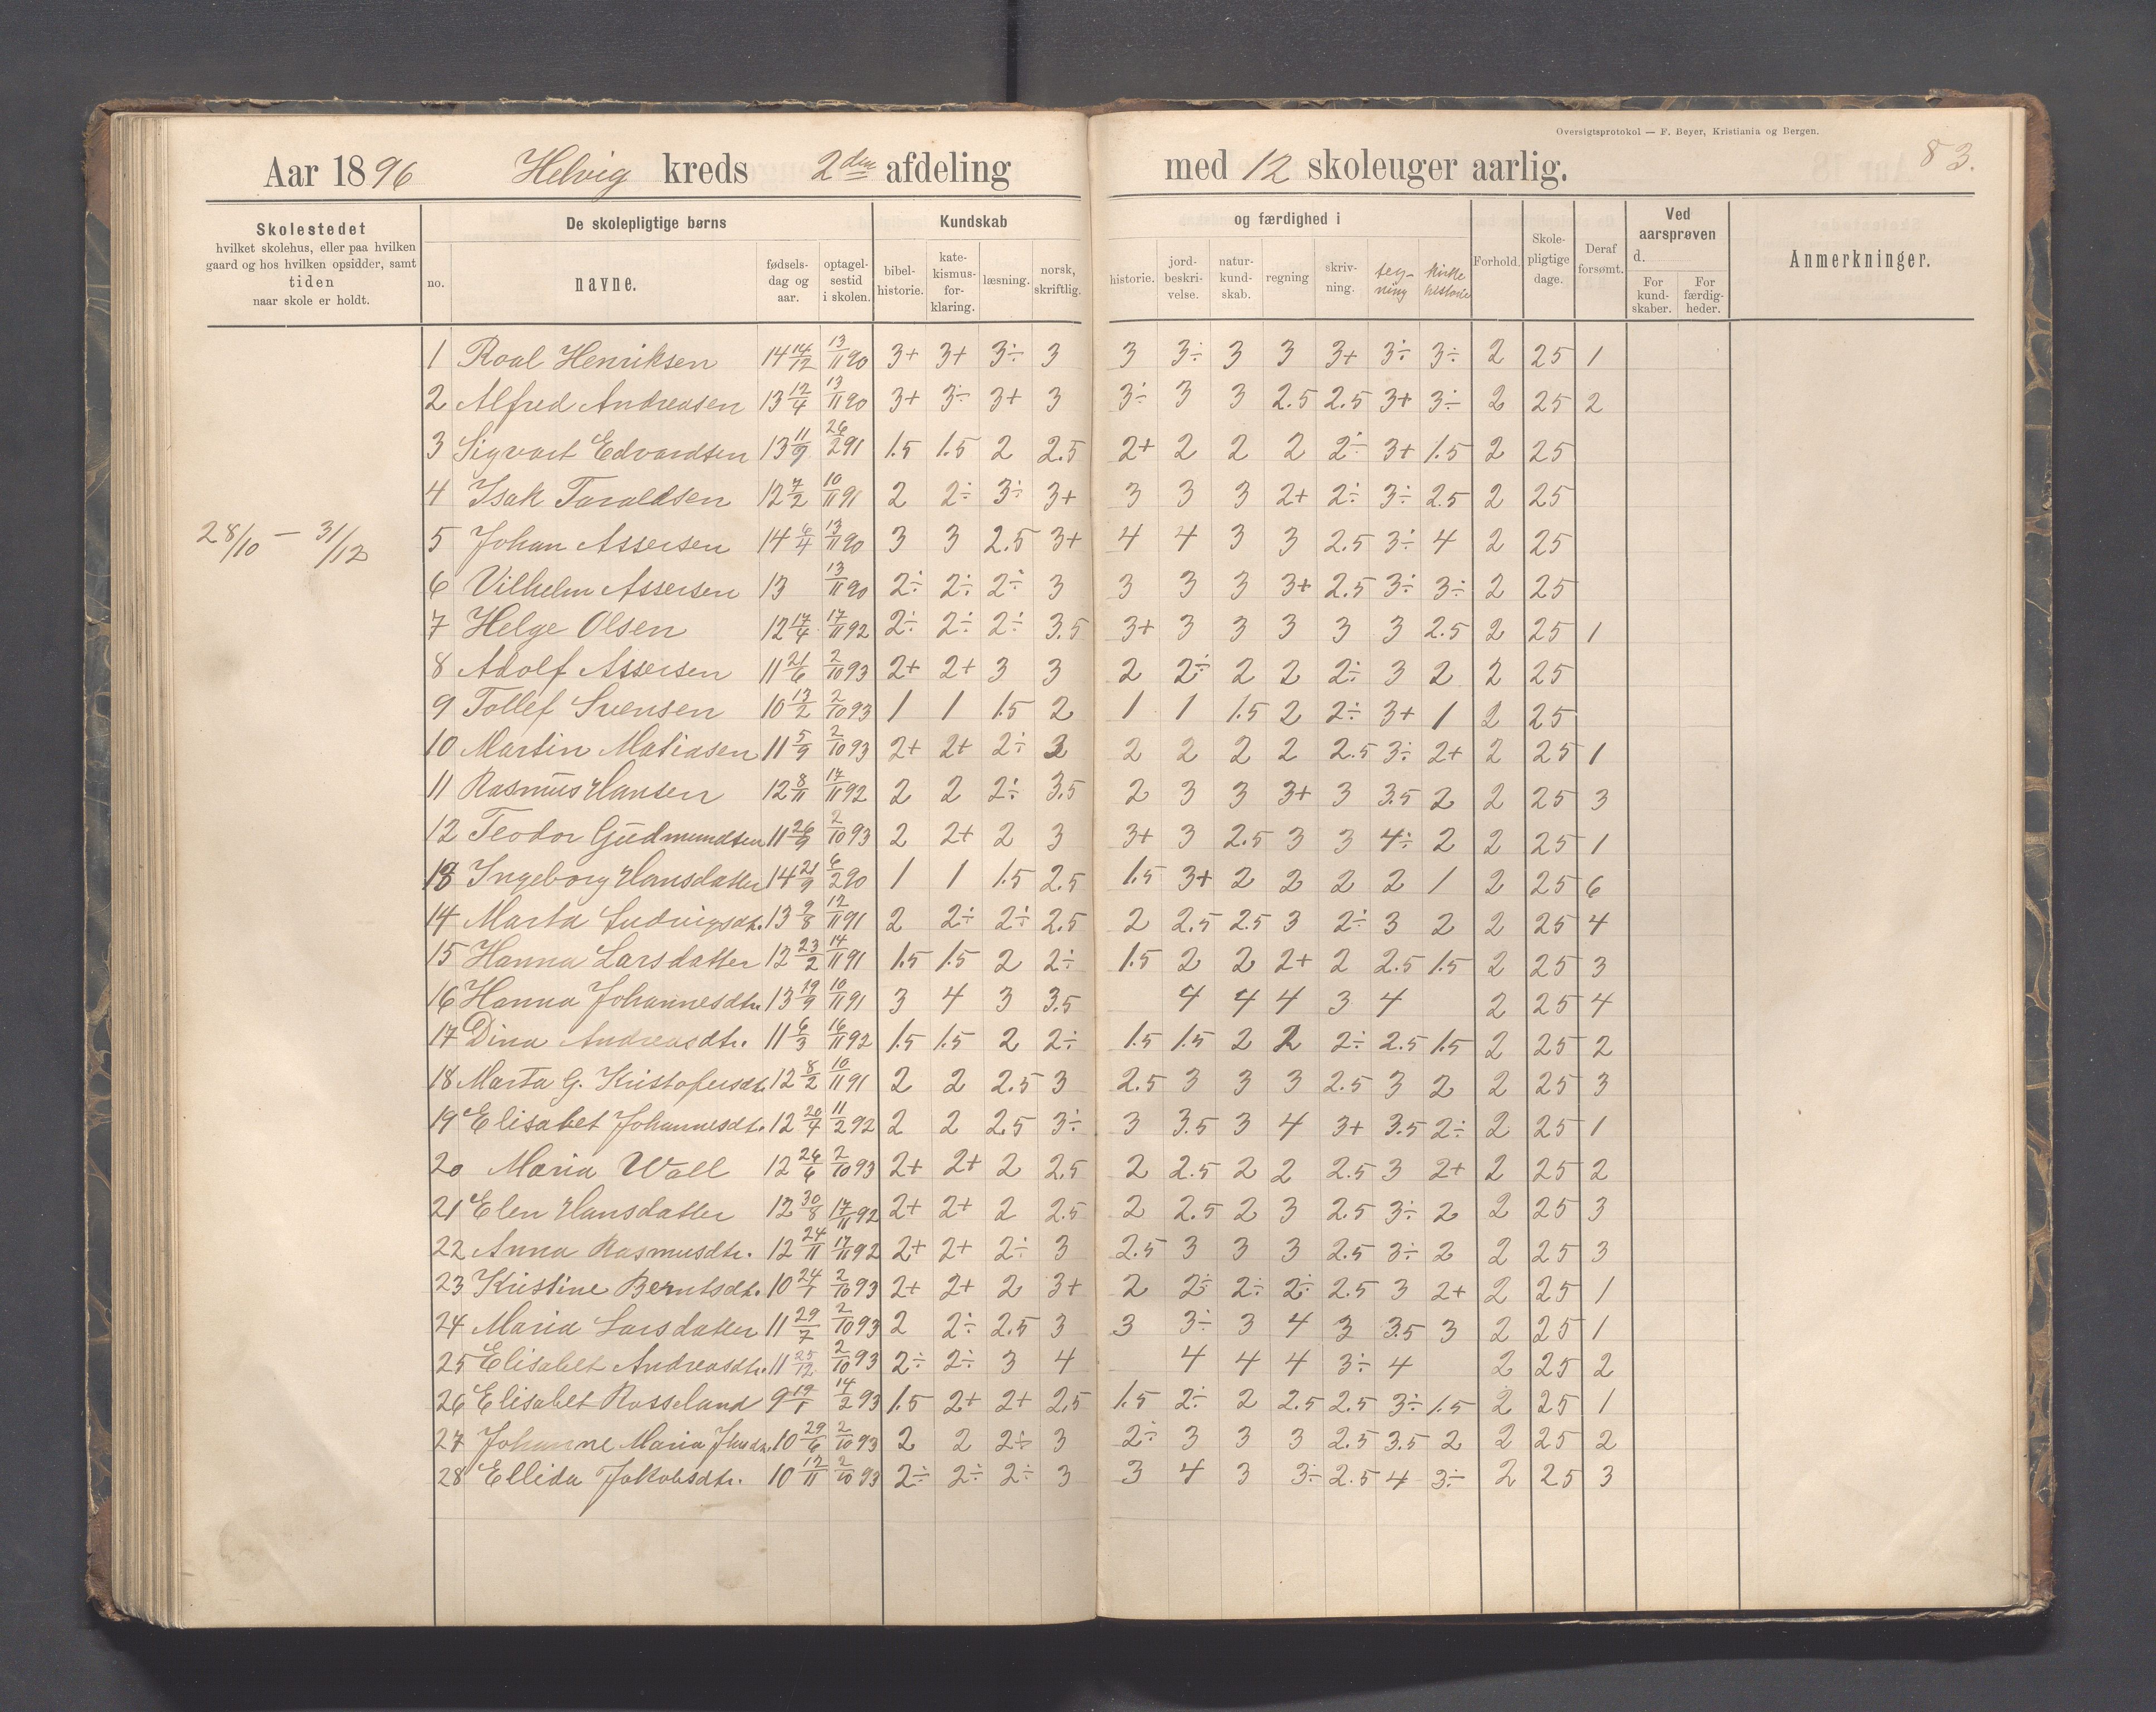 Oversigtsprotokol — F. Beyer, Kristiania og Bergen.
83.
Aar 1896 Helvig kreds 2den afdeling med 12 skoleuger aarlig.
Skolestedet
hvilket skolehus, eller paa hvilken
gaard og hos hvilken opsidder, samt
tiden
naar skole er holdt.
De skolepligtige børns
no.
navne.
fødsels-
dag og
aar.
optagel-
sestid
i skolen.
Kundskab og færdighed i
bibel-
historie.
kate-
kismus-
for-
klaring.
læsning.
norsk,
skriftlig.
historie.
jord-
beskri-
velse.
natur-
kund-
skab.
regning
skriv-
ning.
teg-
ning
Kirke
historie
Forhold.
Skole-
pligtige
dage.
Deraf
forsømt.
Ved
aarsprøven
d.
For
kund-
skaber.
For
færdig-
heder.
Anmerkninger.
28/10 — 31/12
1 Roal Henriksen 14 14/12 13/11 90 3+ 3+ 3÷ 3 3 3÷ 3 3 3+ 3÷ 3÷ 2 25 1
2 Alfred Andreasen 13 12/4 13/11 90 3+ 3÷ 3+ 3 3÷ 3 3 2.5 2.5 3+ 3÷ 2 25 2
3 Sigvart Edvardsen 13 11/9 26/2 91 1.5 1.5 2 2.5 2+ 2 2 2 2÷ 3+ 1.5 2 25
4 Isak Taraldsen 12 7/2 10/11 91 2 2÷ 3÷ 3+ 3 3 3 2+ 2÷ 3÷ 2.5 2 25
5 Johan Assersen 14 6/4 13/11 90 3 3 2.5 3+ 4 4 3 3 2.5 3÷ 4 2 25
6 Vilhelm Assersen 13 13/11 90 2÷ 2÷ 2÷ 3 3 3 3 3+ 2.5 3÷ 3÷ 2 25
7 Helge Olsen 12 17/4 17/11 92 2÷ 2÷ 2÷ 3.5 3+ 3 3 3 3 3 2.5 2 25 1
8 Adolf Assersen 11 21/6 2/10 93 2+ 2+ 3 3 2 2÷ 2 2 2÷ 3 2 2 25
9 Tollef Svensen 10 13/2 2/10 93 1 1 1.5 2 1 1 1.5 2 2÷ 3+ 1 2 25
10 Martin Matiasen 11 5/9 2/10 93 2+ 2+ 2÷ 3 2 2 2 2 2.5 3÷ 2+ 2 25 1
11 Rasmus Hansen 12 8/11 17/11 92 2 2 2÷ 3.5 2 3 3 3+ 3 3.5 2 2 25 3
12 Teodor Gudmundsen 11 26/9 2/10 93 2 2+ 2 3 3+ 3 2.5 3 3 4÷ 2 2 25 1
13 Ingeborg Hansdatter 14 21/9 6/2 90 1 1 1.5 2.5 1.5 3+ 2 2 2 2 1 2 25 6
14 Marta Ludvigsdt. 13 9/8 12/11 91 2 2÷ 2÷ 2.5 2 2.5 2.5 3 2÷ 3 2 2 25 4
15 Hanna Larsdatter 12 23/2 14/11 91 1.5 1.5 2 2÷ 1.5 2 2 2+ 2 2.5 1.5 2 25 3
16 Hanna Johannesdtr. 13 19/9 10/11 91 3 4 3 3.5 4 4 4 3 4 2 25 4
17 Dina Andreasdtr. 11 6/3 16/11 92 1.5 1.5 2 2÷ 1.5 1.5 2 2 2÷ 2.5 1.5 2 25 2
18 Marta G. Kristofersdt. 12 8/2 10/11 91 2 2 2.5 3 2.5 3 3 3 2.5 3 2 2 25 3
19 Elisabet Johannesdt. 12 20/4 11/2 92 2 2 2.5 3÷ 3 3.5 3 4 3+ 3.5 2÷ 2 25 1
20 Maria Wall 12 26/6 2/10 93 2+ 2+ 2 2.5 2 2.5 2 2 2.5 3 2+ 2 25 2
21 Elen Hansdatter 12 30/8 17/11 92 2+ 2+ 2 2.5 2 2.5 2 3 2.5 3÷ 2 2 25 3
22 Anna Rasmusdtr. 12 24/11 17/11 92 2+ 2+ 2÷ 3 2.5 3 3 3 2.5 3÷ 2 2 25 3
23 Kristine Berntsdt. 10 24/1 2/10 93 2+ 2+ 2 3+ 2 2÷ 2÷ 2÷ 2.5 3 2+ 2 25 1
24 Maria Larsdatter 11 29/7 2/10 93 2 2÷ 2.5 3 3 3÷ 3 4 3 3.5 3 2 25 1
25 Elisabet Andreasdtr. 11 25/12 2/10 93 2÷ 2÷ 3 4 4 4 4 3÷ 4 2 25 2
26 Elisabet Rosseland 9 19/1 14/2 93 1.5 2+ 2+ 2.5 1.5 2÷ 2 2.5 2.5 3÷ 1.5 2 25 1
27 Johanne Maria 10 29/6 2/10 93 2 2 2÷ 3 2÷ 3 3 3 2.5 3.5 2 2 25 2
28 Ellida Jakobsdtr. 10 12/11 2/10 93 2÷ 2÷ 2÷ 3 3 4 3 3÷ 2.5 4 3÷ 2 25 3